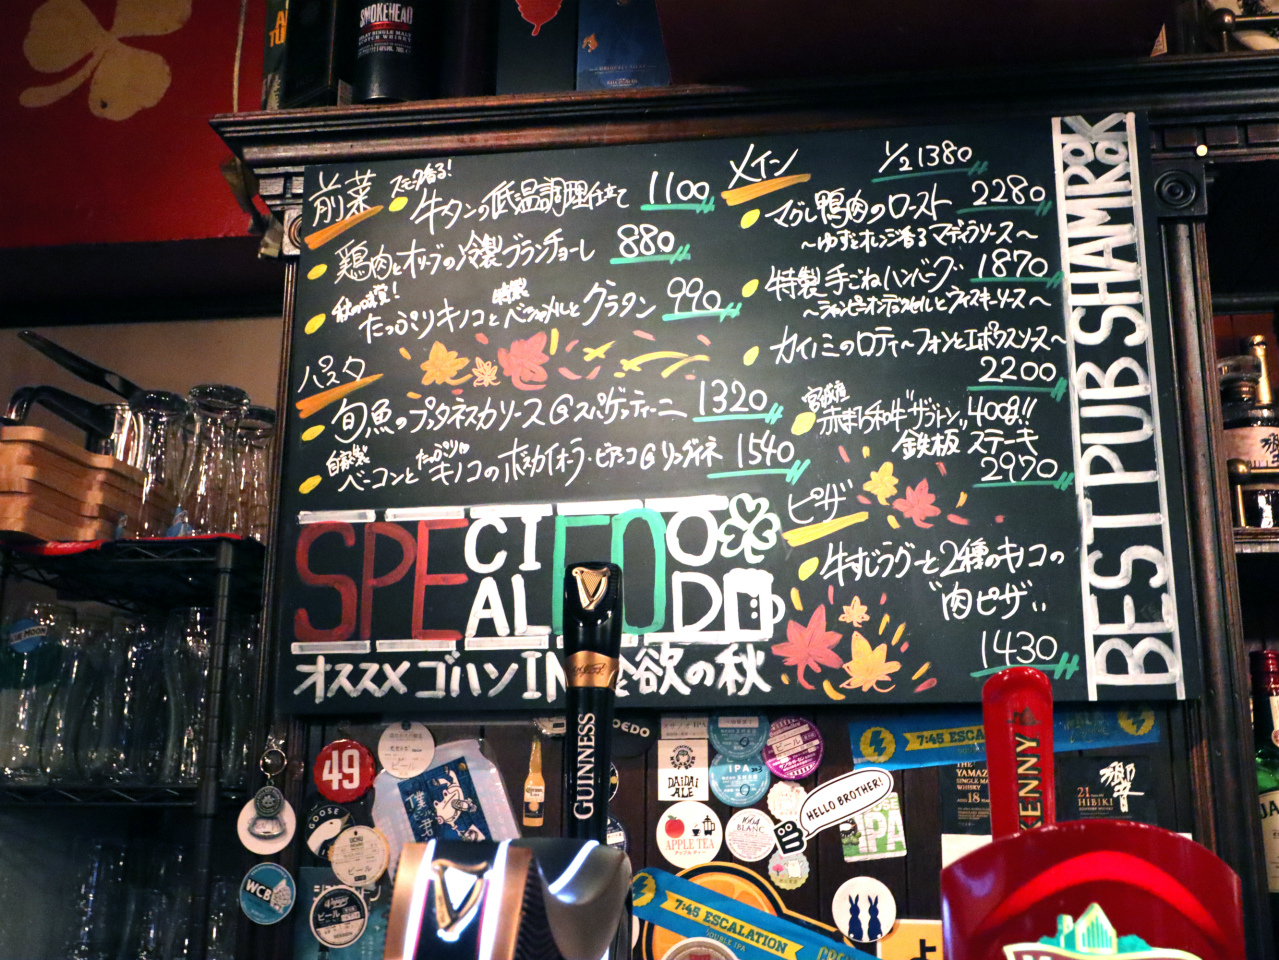 SMOKEHEAD
前菜
スモーク香る!
牛タンの低温調理仕立て 1100
鶏肉とオリーブの冷製ブランチョーレ 880
秋の味覚!
たっぷりキノコと特製ベシャメルとグラタン 990
パスタ
旬魚のプッタネスカソース@スパゲッティーニ 1320
自家製
ベーコンとたっぷりキノコのボスカイオーラ・ビアンコ@リングイネ 1540
メイン
1/2 1380
マグレ鴨肉のロースト 2280
~ゆずとオレンジ香るマディラソース~
特製手ごねハンバーグ 1870
~シャンピニオンデュクセルとウィスキーソース~
カイノミのロティ~フォンとエポワスソース~
2200
宮城産
赤まち和牛"ザブトン"400g!!
鉄板ステーキ
2970
ピザ
牛すじラグーと2種のキノコの
"肉ピザ"
1430
SPECIAL FOOD
オススメゴハン IN 食欲の秋
BEST PUB SHAMROCK
GUINNESS
49
GOOSE
WCB
BLUE MOON
DAiDAi
ALE
IPA
APPLE TEA
アップルティー
1664
BLANC
HELLO BROTHER!
IPA
7:45 ESCALATION
7:45 ESCALATION
DOUBLE IPA
THE
YAMAZ
18
21
HIBIKI
響
KENNY
ビール